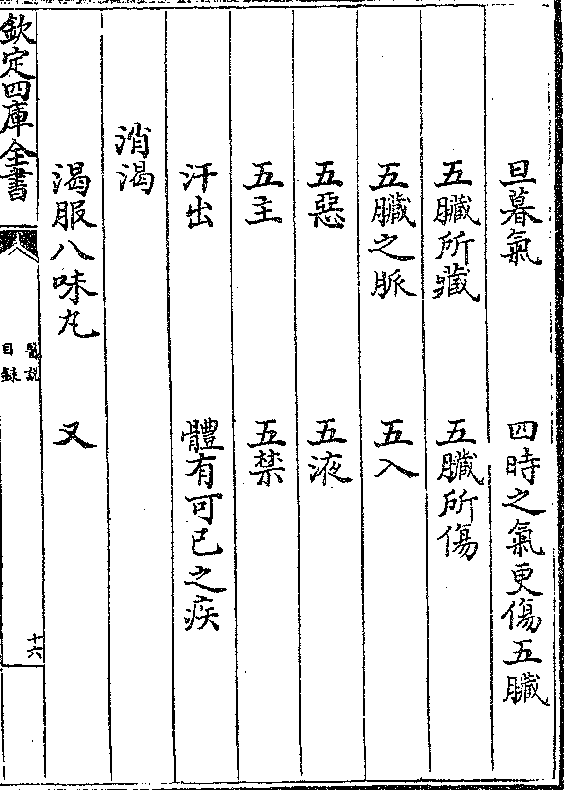 旦暮氣　四時之氣更傷五臟
五臟所藏　五臟所傷
五臟之脈　五入
五惡　五液
五主　五禁
汗出　體有可已之疾
消渴
渴服八味丸　又
欽定四庫全書
醫說
目錄
十六